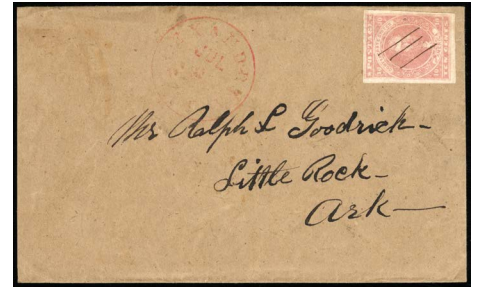 JUL
Mr Ralph L Goodrich
Little Rock
Ark